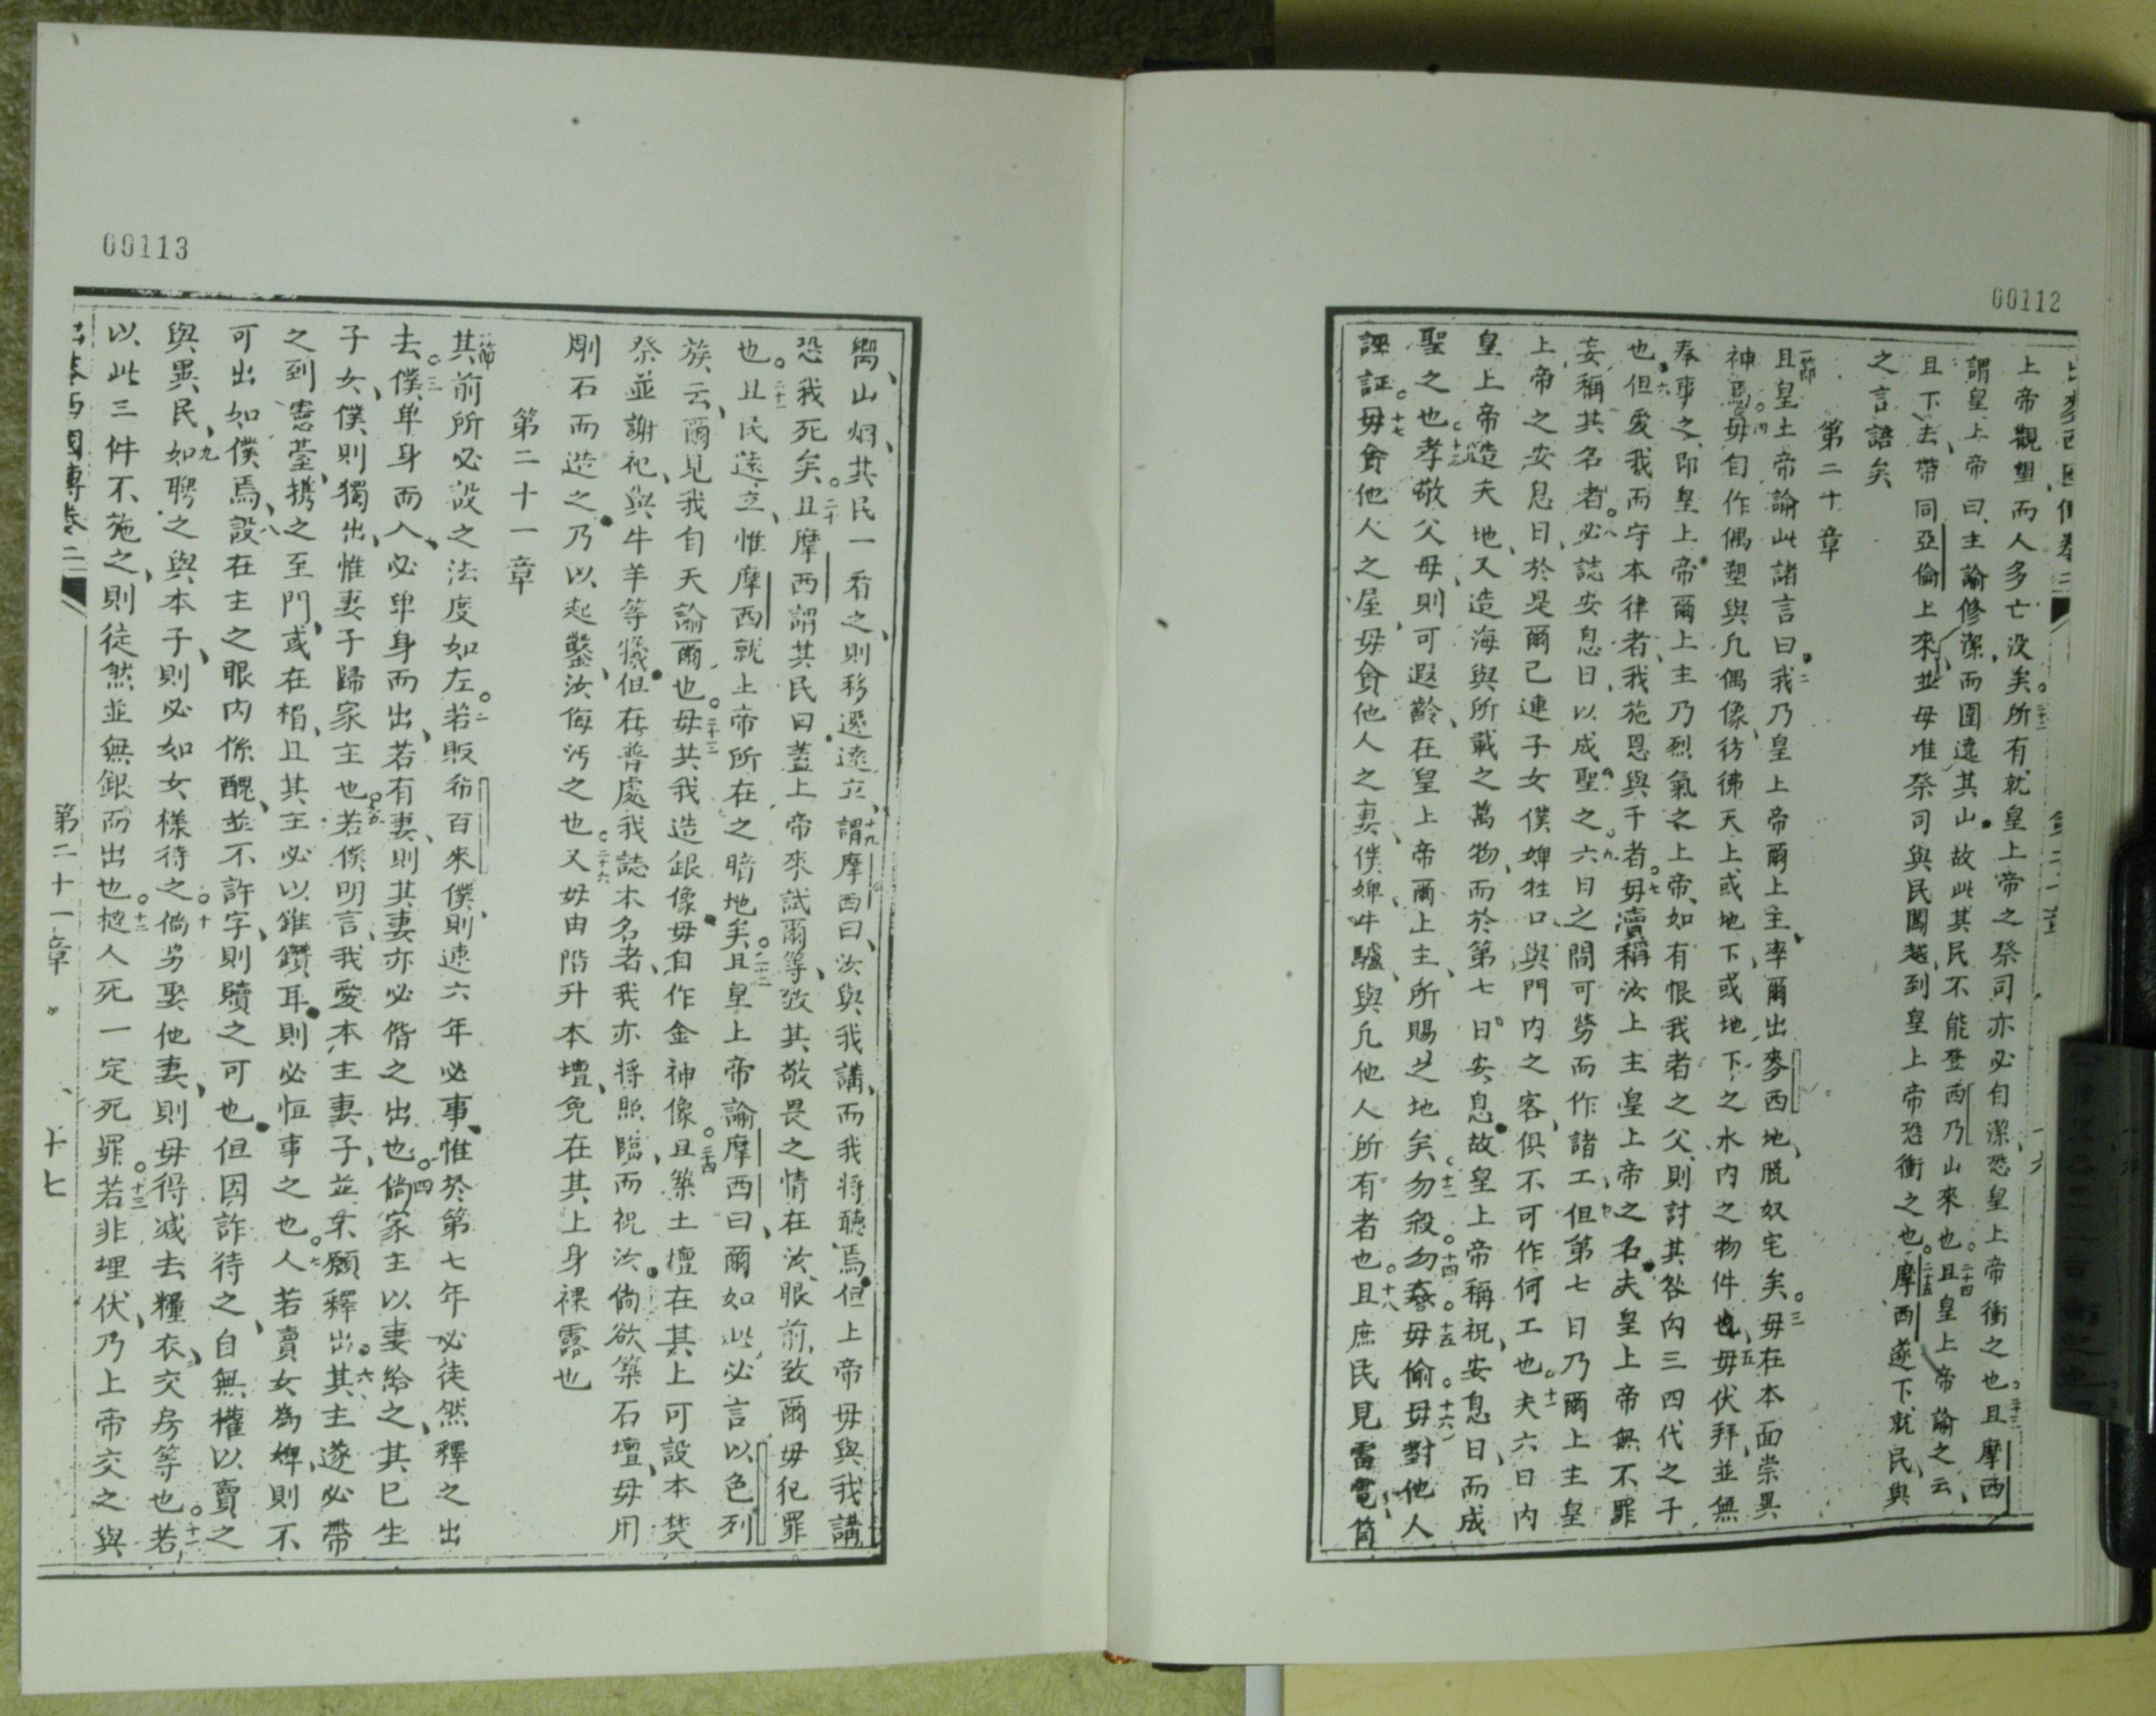 00112
上帝觀望而人多亡没矣。二十二所有就皇上帝之祭司亦必自潔、恐皇上帝衝之也。二十三且摩西
謂皇上帝曰、主諭修潔、而圍遶其山、故此其民不能登西乃山來也。二十四且皇上帝諭之云、
且下去、帶同亞倫上來、並毋准祭司與民闖越、到皇上帝恐衝之也。二十五摩西遂下、就民、與
之言語矣
第二十章
一節且皇上帝諭此諸言曰、二我乃皇上帝爾上主、率爾出麥西地、脱奴宅矣。三毋在本面崇異
神焉。四毋自作偶塑與凡偶像、彷彿天上、或地下、或地下之水内之物件也、五毋伏拜、並無
奉事之、即皇上帝爾上主、乃烈氣之上帝、如有恨我者之父、則討其咎向三四代之子
也、六但愛我而守本律者、我施恩與千者。七毋瀆稱汝上主皇上帝之名、夫皇上帝無不罪
妄稱其名者。八必誌安息日、以成聖之。九六日之間可勞而作諸工、十但第七日乃爾上主皇
上帝之安息日、於是爾己連子女僕婢牲口、與門内之客、俱不可作何工也。十一夫六日内
皇上帝造天地、又造海與所載之萬物、而於第七日安息、故皇上帝稱祝安息日、而成
聖之也。十二孝敬父母、則可遐齡、在皇上帝爾上主、所賜之地矣。十三勿殺。十四勿姦。十五毋偷。十六毋對他人
誣証。十七毋貪他人之屋、毋貪他人之妻、僕婢牛驢、與凡他人所有者也。十八且庶民見雷電、筒
00113
嚮、山烟、其民一看之、則移遷遠立、十九謂摩西曰、汝與我講、而我將聽焉、但上帝毋與我講、
恐我死矣。二十且摩西謂其民曰、蓋上帝來試爾等、致其敬畏之情在汝眼前、致爾毋犯罪
也。二十一且民遠立、惟摩西就上帝所在之暗地矣。二十二且皇上帝諭摩西曰、爾如此必言以色列
族云、爾見我自天諭爾也。二十三毋共我造銀像、毋自作金神像。二十四且築土壇、在其上可設本焚
祭並謝祀、與牛羊等犧、但在普處我誌本名者、我亦將照臨、而祝汝。倘欲築石壇、毋用
剛石而造之、乃以起鑿、汝侮汚之也。二十六又毋由階升本壇、免在其上身裸露也
第二十一章
一節其前所必設之法度如左。二若販希百來僕、則速六年必事、惟於第七年必徒然釋之出
去。三僕单身而入、必单身而出、若有妻、則其妻亦必偕之出也。四倘家主以妻給之、其已生
子女、僕則獨出、惟妻子歸家主也。五若僕明言、我愛本主妻子、並不願釋出。六其主遂必帶
之到憲臺、携之至門、或在楣、且其主必以錐鑽耳、則必恒事之也。七人若賣女為婢、則不
可出如僕焉、八設在主之眼内係醜、並不許字、則贖之可也、但因詐待之、自無權以賣之
與異民、九如聘之與本子、則必如女樣待之。十倘另娶他妻、則毋得減去糧、衣、交房等也。十一若
以此三件不施之、則徒然並無銀而出也。十二撻人死一定死罪。十三若非埋伏、乃上帝交之與
第二十一章
十七